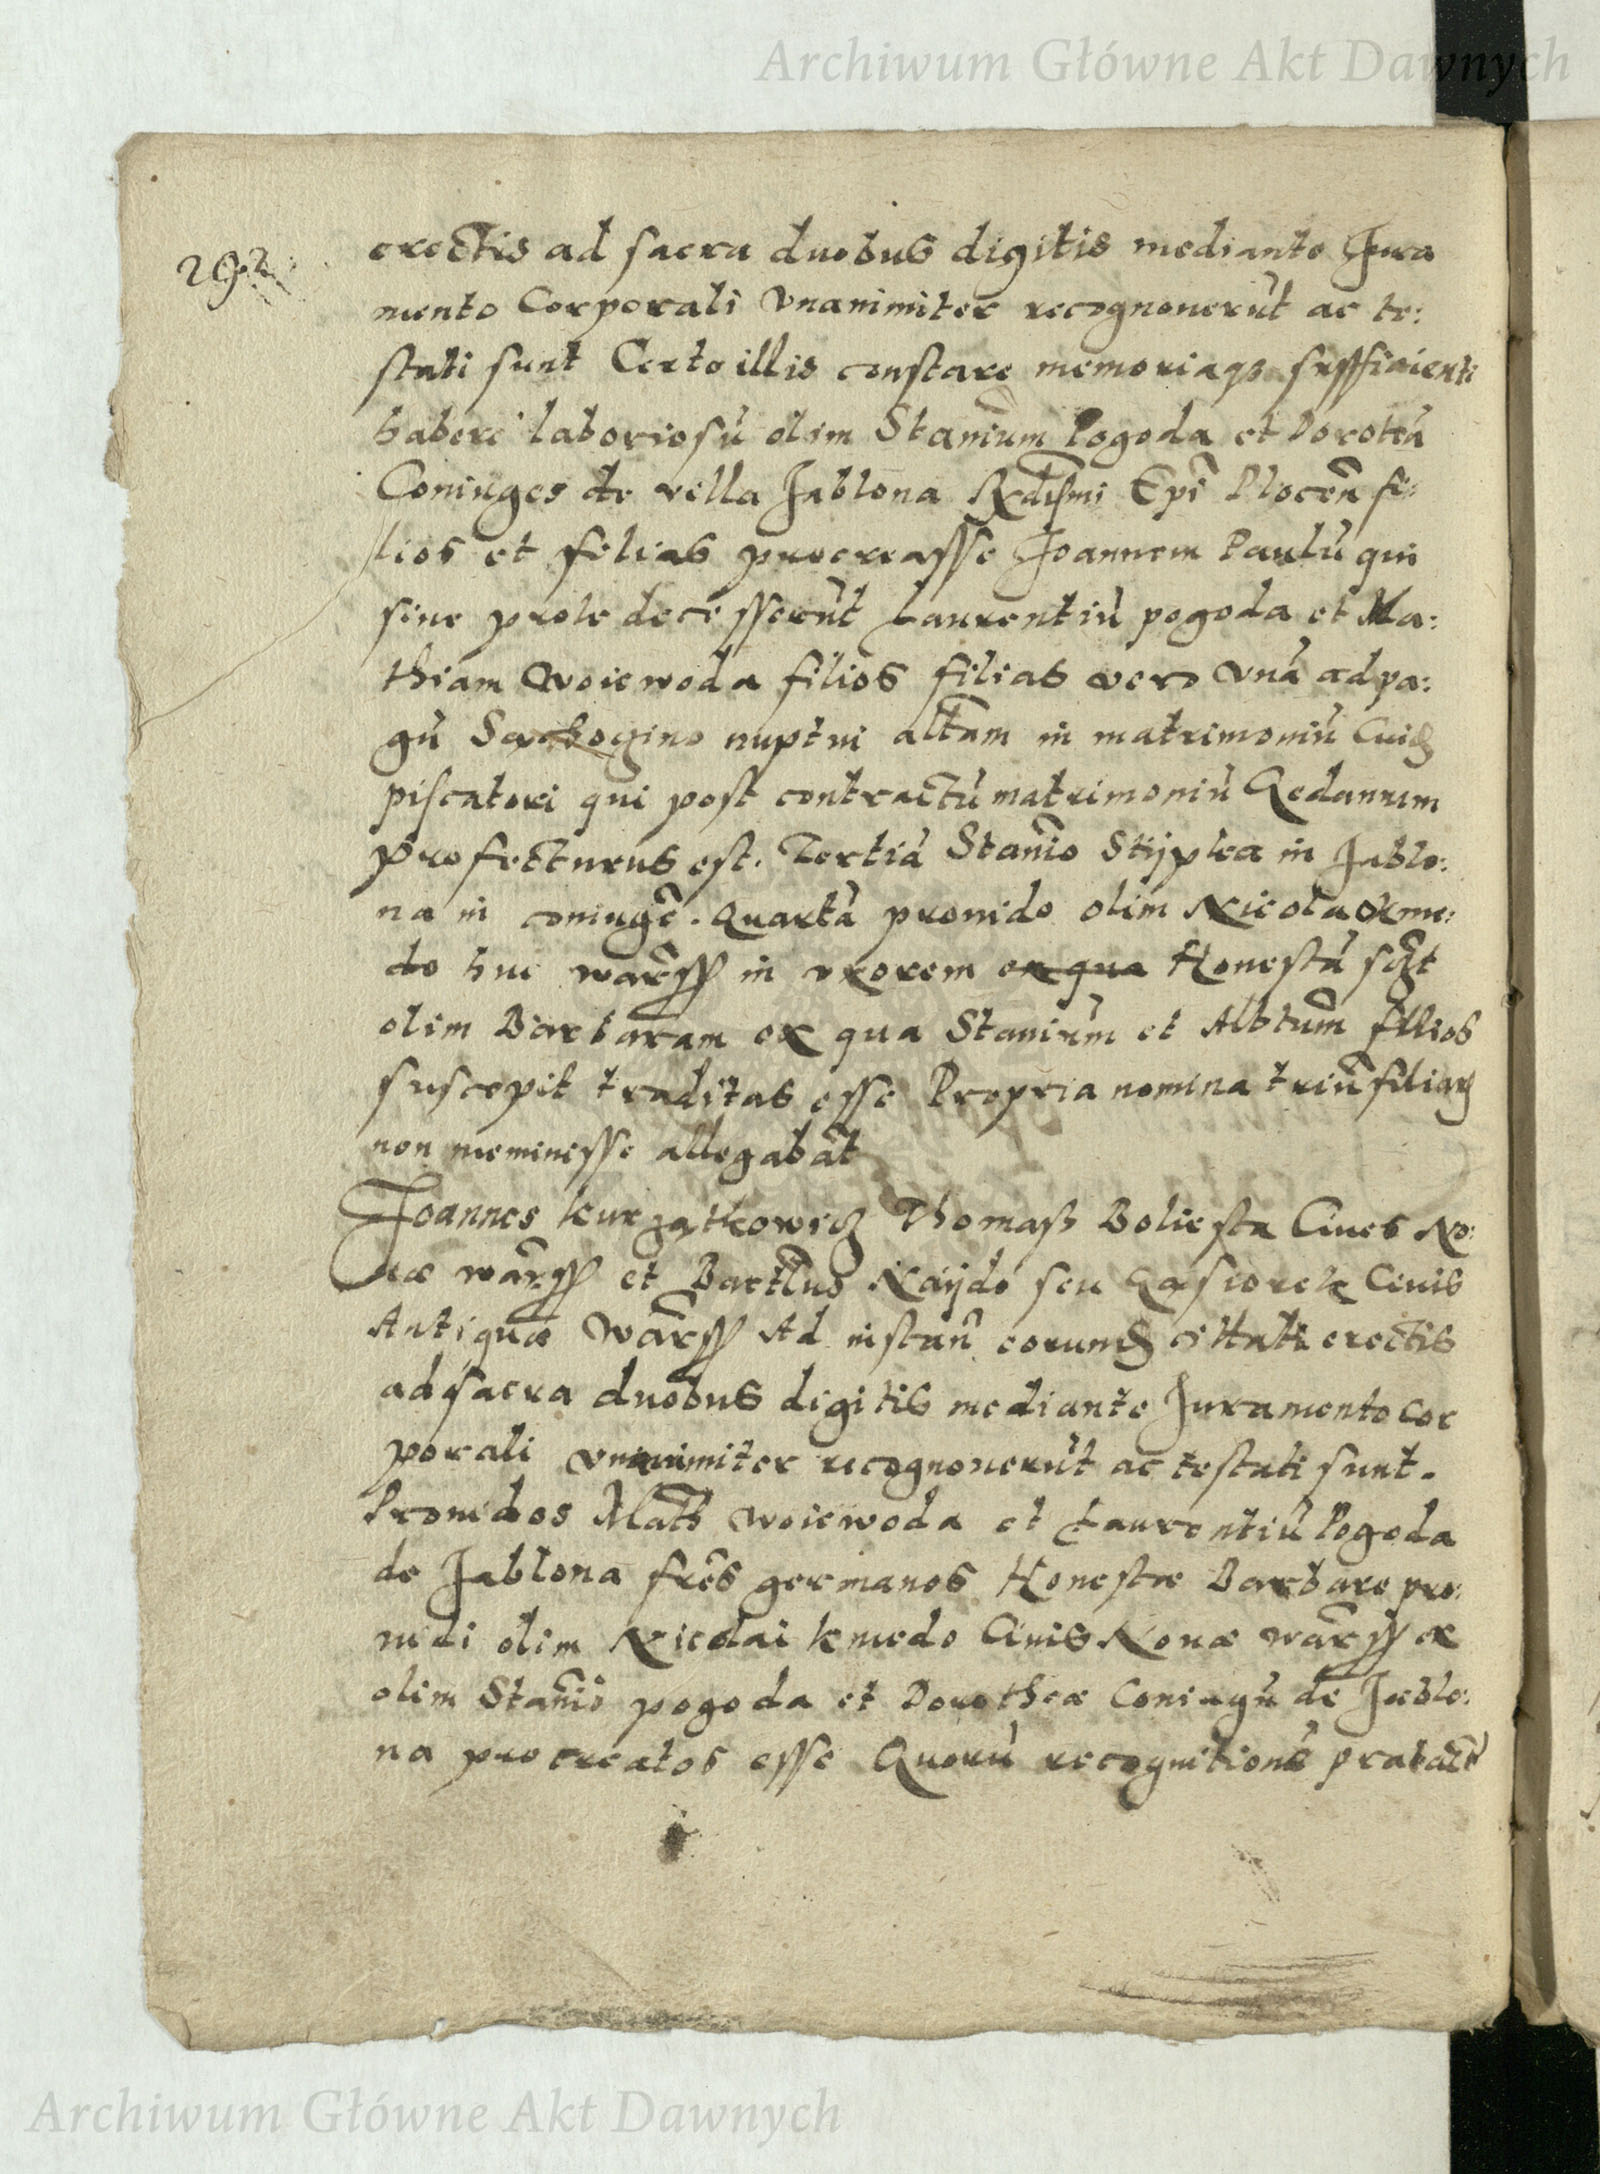 Archiwum Główne Akt Dawnych
292
erectis ad sacra duobus digitis mediante Jura
mento Corporali Vnanimiter recognouerũt ac te:
stati sunt Certo illis constare memoriaqз sufficienti
habere laboriosũ olim Stanium Pogoda et Dorotheã
Coniuges de villa Jablona Rdismi Epi Plocen̄ fi:
lios et filias procreasse Joannem Paulũ qui
sine prole decesserũt Laurentiũ pogoda et Ma:
thiam Woiewoda filios filias vero vnã ad pa:
gũ nuptui altam in matrimoniũ Cuid
piscatori qui post contractũ matrimoniũ Gedanum
profecturus est. Tertiã Stanio Stÿpka in Jablo:
na in coniugē. Quartã prouido olim Nicolao Kme:
do ciui warss in vxorem ex qua Honestã sct
olim Barbaram ex qua Stanium et Albtum filios
suscepit traditas esse Propria nomina triũ filiar
non meminesse allegabãt
Joannes Kurzątkowicz Thomass Boliesta Ciues No:
uæ warss et Bartlus Naÿdo seu Gąsiorek Ciuis
Antiquæ Warss Ad instan̄ eorumd citati erectis
ad sacra duobus digitis mediante Juramento cor
porali vnanimiter recognouerũt ac testati sunt.
Prouidos Math woiewoda et Laurentiũ Pogoda
de Jablona frēs germanos Honestæ Barbare pro:
uidi olim Nicolai Kmedo Ciuis Nouæ warss ex
olim Stanio pogoda et Dorotheæ Coniugũ de Jablo:
na procreatos esse Quorũ recognitionē
Archiwum Główne Akt Dawnych